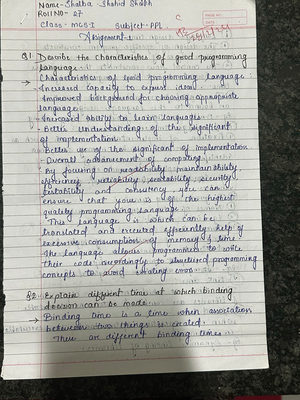 Name- Shaiba Shahid Shaikh
Roll NO - 27
Class - MCS-I Subject - PPL
Assignment - 1
Q1. Describe the Characteristics of good programming
language.
→ Characteristics of good programming language :
• Increased capacity to express ideas.
• Improved background for choosing appropriate
language.
• Increased ability to learn languages.
• Better Understanding of the significant
of implementation.
• Better use of the significant of Implementation
• Overall advancement of computing.
• By focusing on readability, maintainability,
efficiency, reliability, portability, security,
testability and consistency, you can
ensure that your is of the highest
quality programming language.
• This language is which can be
translated and executed efficiently help of
excessive consumption of memory & time.
• The language allows programmers to write
their code accordingly to structured programming
concepts to avoid creating errors.
Q2. Explain different time at which binding
decision can be made.
→ Binding time is a time when association
between two things is created.
There are different binding times